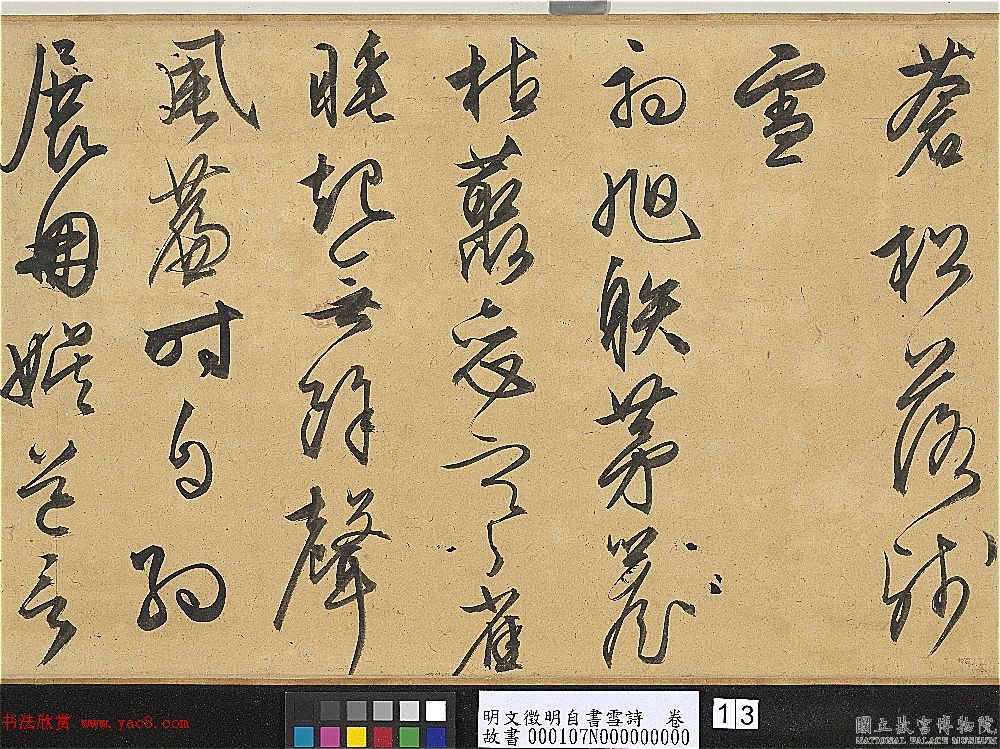 蒼松落殘
雪
初旭映茅茨
枯叢雀
睡起無餘聲
風簷時自
展冊娛道言
书法欣赏 www.yac8.com
明文徵明自書雪詩 卷
故書 000107N000000000
13
國立故宮博物院
NATIONAL PALACE MUSEUM